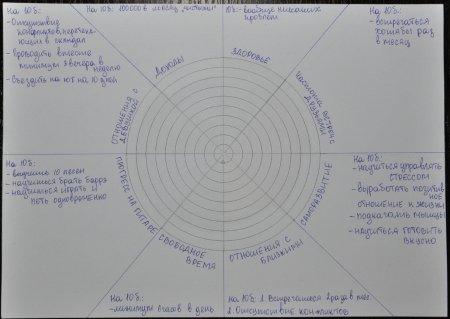 На 10б:
- Отсутствие
конфликтов, перетека-
ющих в скандал
- Проводить вместе
минимум 3 вечера в
неделю
- Съездить на юг на 10 дней
На 10б: 100000 в месяц
На 10б: вообще никаких
проблем
На 10б:
- встречаться
хотя бы раз
в месяц
ОТНОШЕНИЯ С
ДЕВУШКОЙ
ДОХОДЫ
ЗДОРОВЬЕ
ЧАСТОТА ВСТРЕЧ С
ДРУЗЬЯМИ
САМОРАЗВИТИЕ
ОТНОШЕНИЯ С
БЛИЗКИМИ
СВОБОДНОЕ
ВРЕМЯ
ПРОГРЕСС НА ГИТАРЕ
На 10б:
- выучить 10 песен
- научиться брать баррэ
- научиться играть и
петь одновременно
На 10б:
- научиться управлять
стрессом
- выработать позитив
ное
отношение к жизни
- подкачать мышцы
- научиться готовить
вкусно
На 10б:
- минимум часов в день
На 10б: 1. Встречаться 2 раза в
2. Отсутствие конфликтов